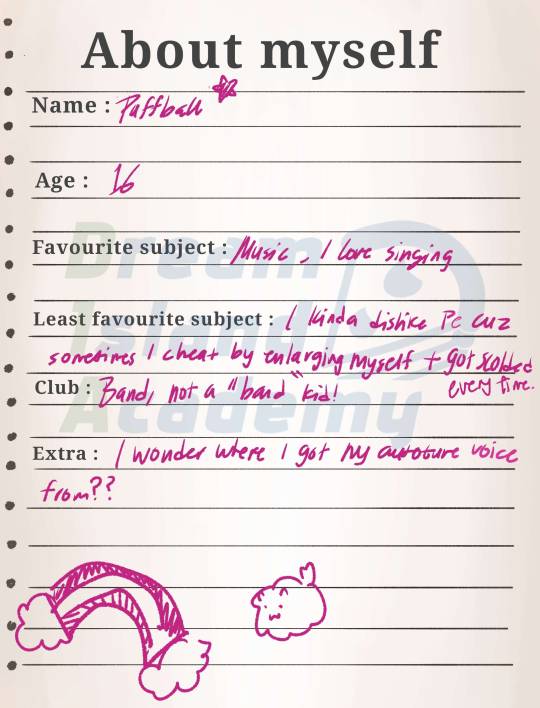 About myself
Name : Puffball
Age : 16
Dream
Favourite subject : Music, I love singing
Island
Least favourite subject : I kinda dislike Pe cuz
sometimes I cheat by enlarging myself + got scolded
every time.
Club : Band, not a "band" kid!
Academy
Extra : I wonder where I got my autotune voice
from??